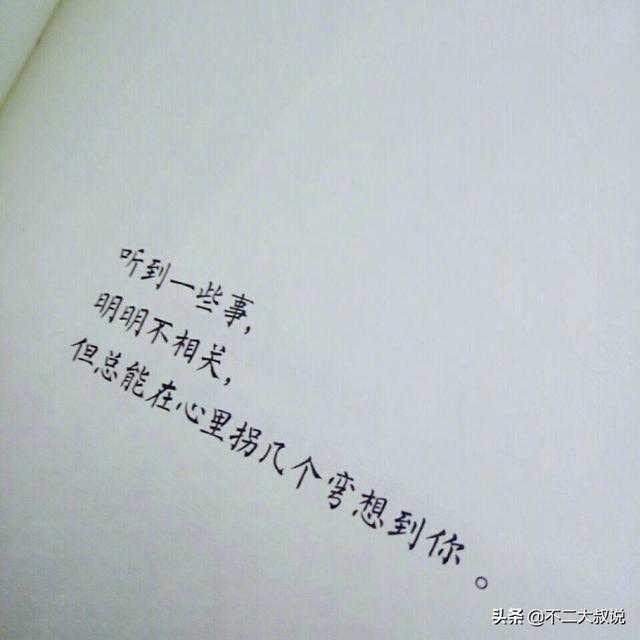 听到一些事,
明明不相关,
但总能在心里拐几个弯想到你。
头条 @不二大叔说